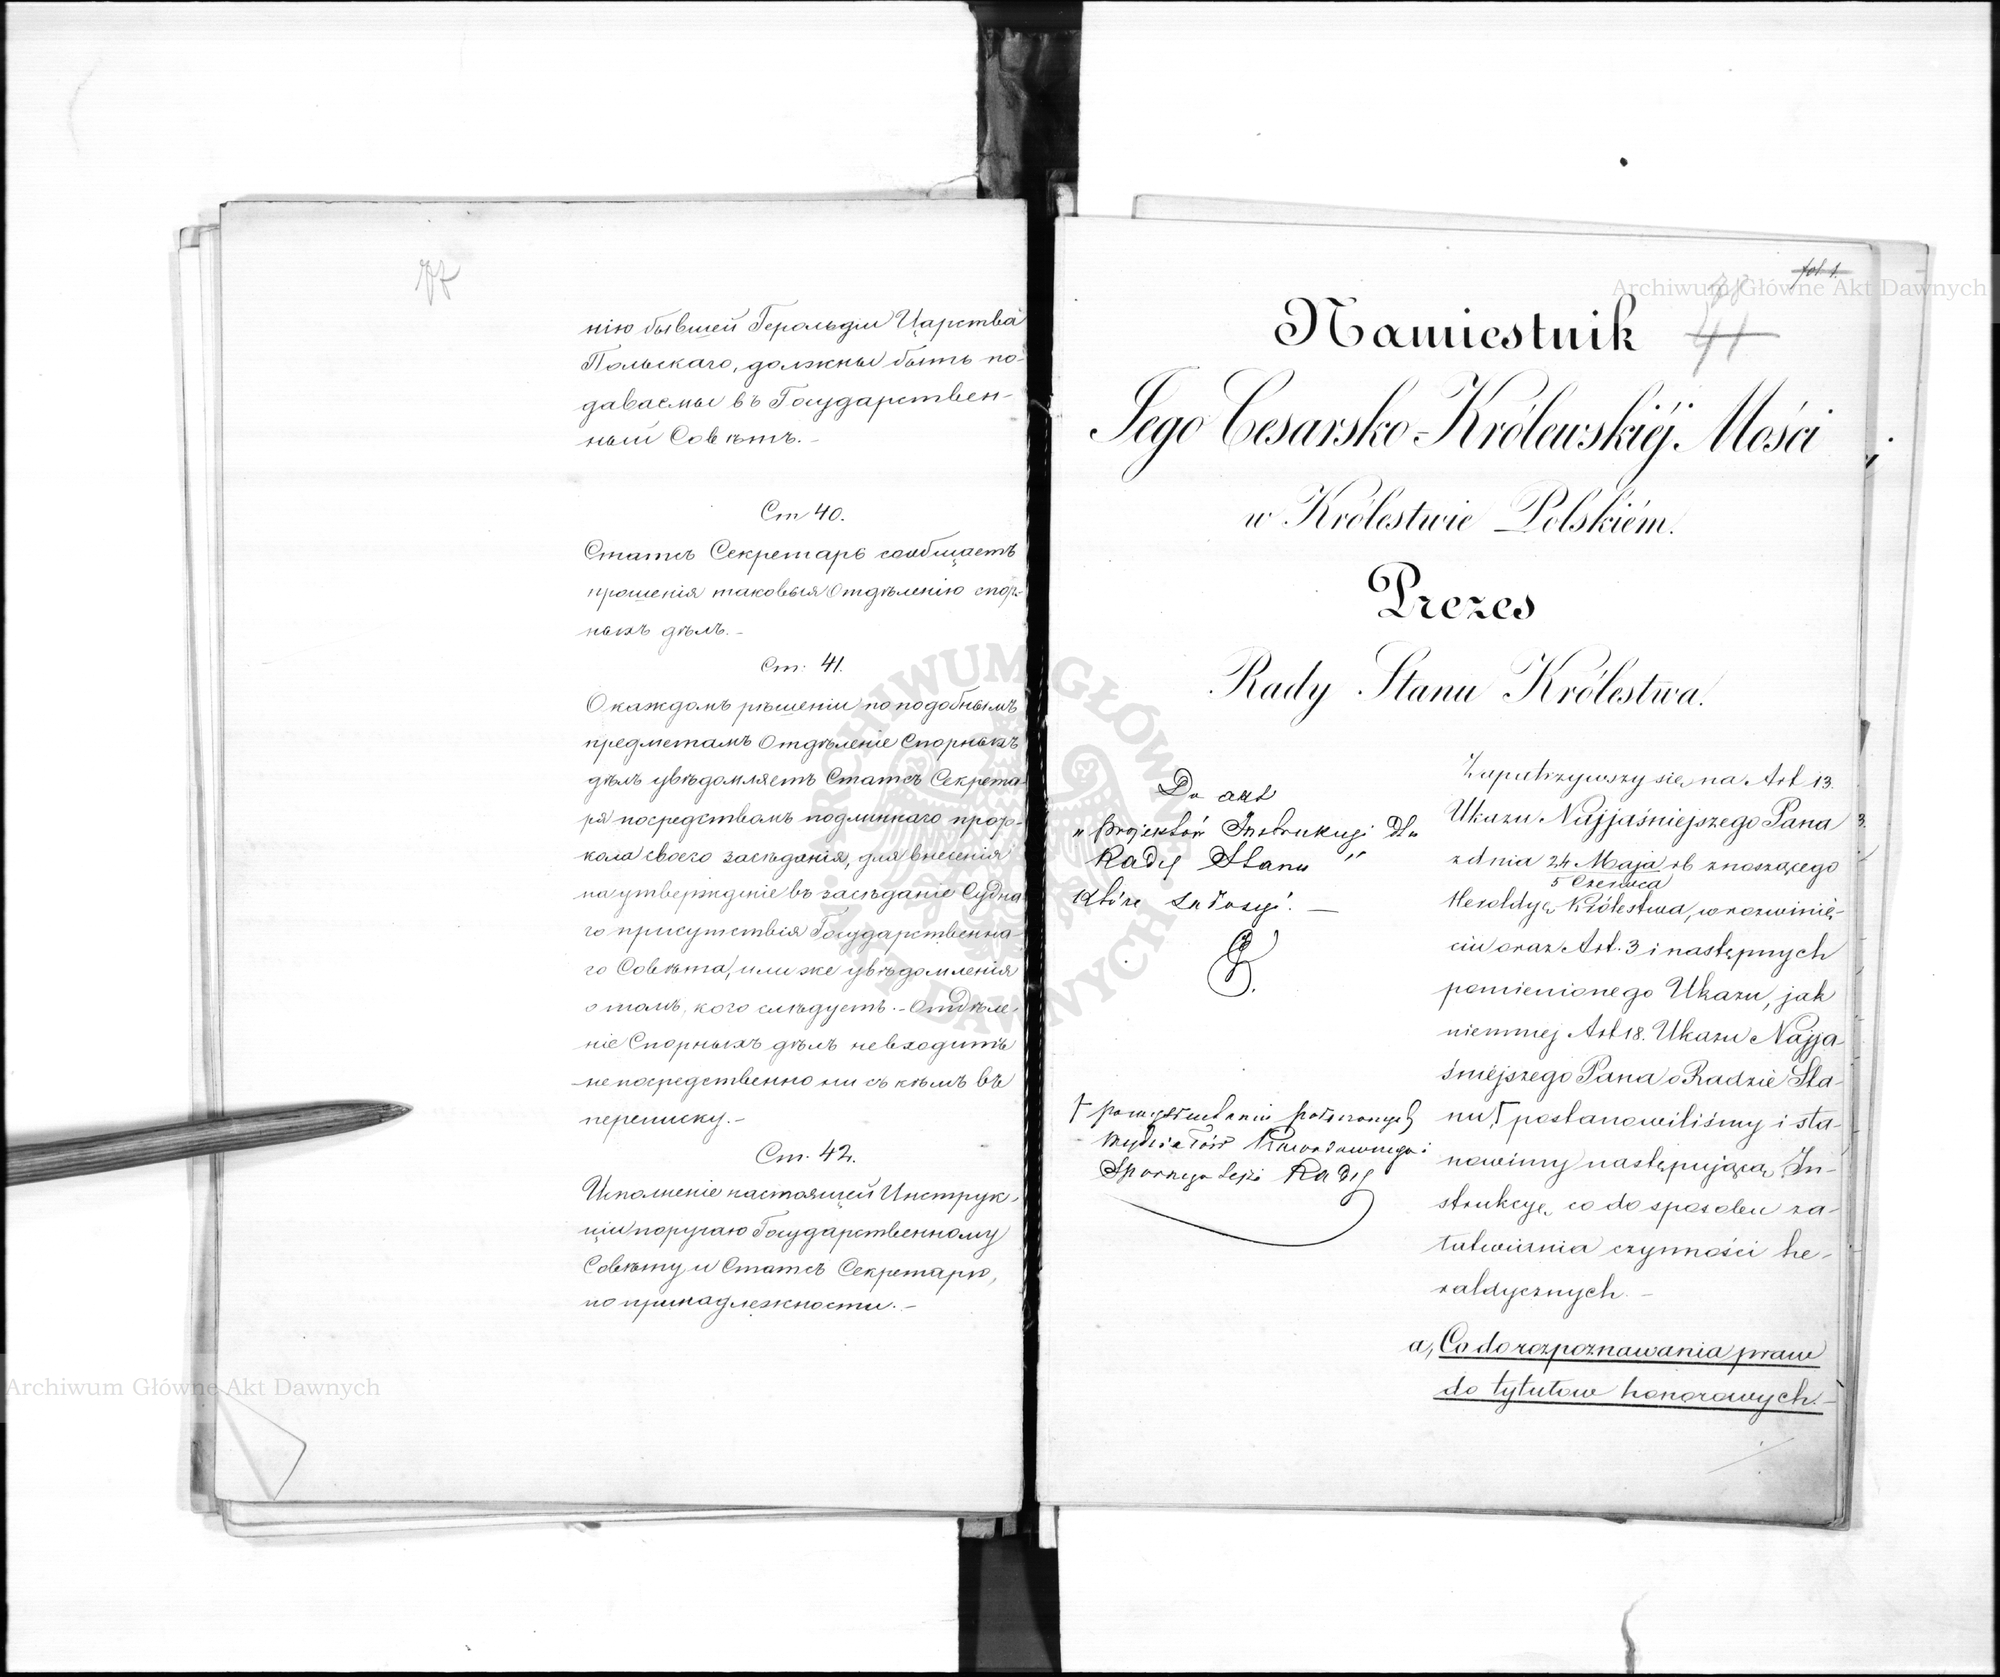 нію бывшей Герольдіи Царства
Польскаго, должны быть по-
даваемы въ Государствен-
ный Совѣтъ.-
Ст 40.
Статсъ Секретарь сообщаетъ
прошенія таковыя Отдѣленію спор-
ныхъ дѣлъ.-
Ст: 41.
О каждомъ рѣшеніи по подобнымъ
предметамъ Отдѣленіе Спорныхъ
дѣлъ увѣдомляетъ Статсъ Секрета-
ря посредствомъ подлиннаго прото-
кола своего засѣданія, для внесенія
на утвержденіе въ засѣданіе Судна-
го присутствія Государственна-
го Совѣта, или же увѣдомленія
о томъ, кого слѣдуетъ.- Отдѣле-
ніе Спорныхъ дѣлъ не входитъ
непосредственно ни съ кѣмъ въ
переписку.-
Ст. 42.
Исполненіе настоящей Инструк-
ціи поручаю Государственному
Совѣту и Статсъ Секретарю,
по принадлежности.-
fol 1.
41
Namiestnik
Jego Cesarsko-Królewskiéj Mości
w Królestwie Polskiém.
Prezes
Rady Stanu Królestwa.
Do akt
"projektów Instrukcyi dla
Rady Stanu"
które załączyć. —
† pomienionych
Wydziałów Prawodawczego i
Spornego tejże Rady
Zapatrzywszy się na Art 13.
Ukazu Najjaśniejszego Pana
z dnia 24 Maja rb znoszącego
5 Czerwca
Heroldyę Królestwa, w rozwinię-
ciu oraz Art. 3 i następnych
pomienionego Ukazu, jak
niemniej Art 18. Ukazu Najja-
śniejszego Pana o Radzie Sta-
nu, † postanowiliśmy i sta-
nowimy następującą In-
strukcyę, co do sposobu za-
łatwiania czynności he-
raldycznych. —
a, Co do rozpoznawania praw
do tytułów honorowych. —
Archiwum Główne Akt Dawnych
Archiwum Główne Akt Dawnych
ARCHIWUM GŁÓWNE AKT DAWNYCH